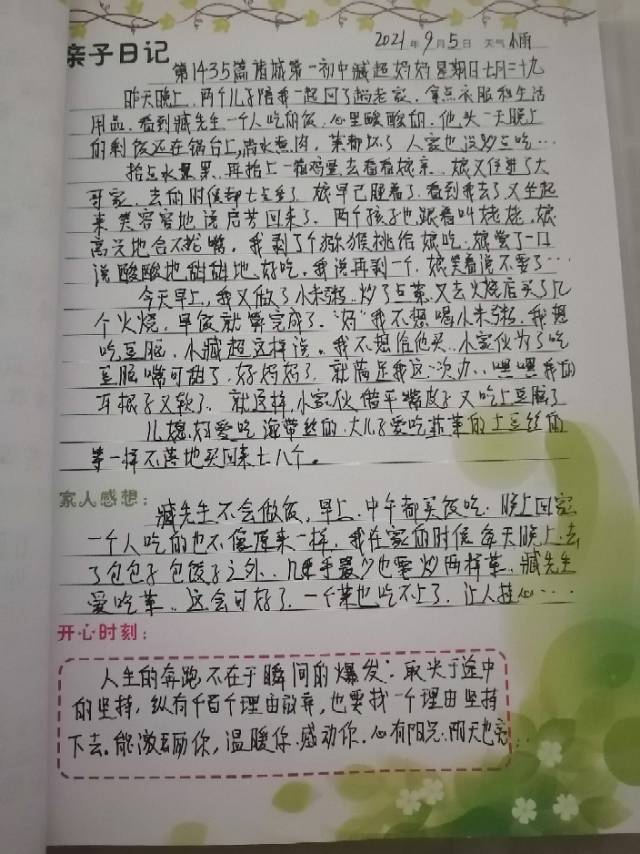 2021年9月5日 天气小雨
亲子日记
第1435篇诸城第一初中臧超妈妈星期日七月二十九
昨天晚上，两个儿子陪我一起回了趟老家，拿点衣服和生活
用品，看到臧先生一个人吃的饭，心里酸酸的，他头一天晚上
的剩饭还在锅台上，清水煮肉，菜都坏了人家也没炒点吃…
拾点水果，再拾上一箱鸡蛋去看看娘亲，娘又住进了大
哥家，去的时候都七点多了，娘早已睡着了，看到我去了又坐起
来，笑容容地说启芳回来了，两个孩子也跟着叫姥姥，娘
高兴地合不拢嘴，我剥了个猕猴桃给娘吃，娘尝了一口
说酸酸地甜甜地，好吃，我说再剥一个，娘笑着说不要了…
今天早上，我又做了小米粥，炒了点菜，又去火烧店买了几
个火烧，早饭就算完成了。“妈”我不想喝小米粥，我想
吃豆脑，小臧超这样说。我不想给他买，小家伙为了吃
豆脑嘴可甜了，好妈妈，就满足我这一次办，嘿嘿我的
耳根子又软了，就这样，小家伙借平嘴皮子又吃上豆脑了
儿媳妇爱吃海带丝的，大儿子爱吃菲菜的土豆丝的
等一样不落地买回来七八个。
家人感想：
臧先生不会做饭，早上，中午都买饭吃，晚上回家
一个人吃的也不像原来一样，我在家的时候每天晚上，去
了包包子包饺子之外，几乎最少也要炒两样菜，臧先生
爱吃菜，这会可好了，一个菜也吃不上了，让人挂心…
开心时刻：
人生的奔跑，不在于瞬间的爆发：取决于途中
的坚持，纵有千百个理由放弃，也要找一个理由坚持
下去。能激励你，温暖你，感动你。心有阳光，雨天也